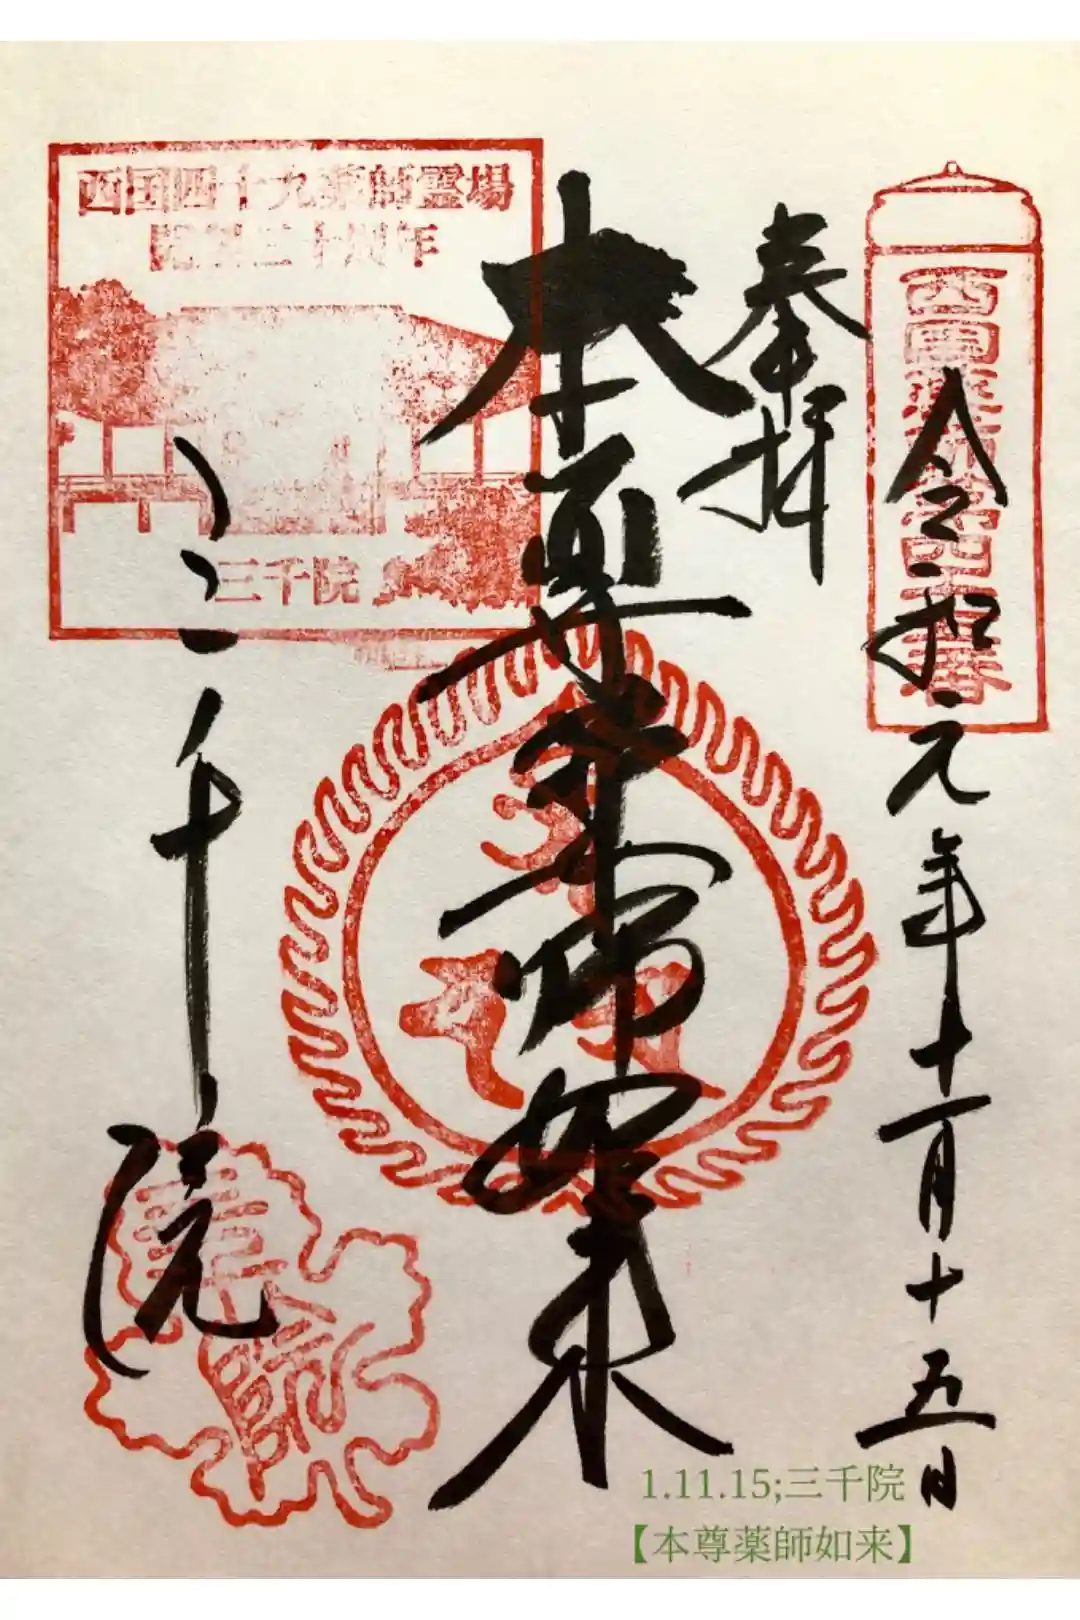 西国薬師第四十五番
令和元年十一月十五日
奉拝
本尊薬師如来
西国四十九薬師霊場
開創三十周年
三千院
三千院
1.11.15;三千院
【本尊薬師如来】